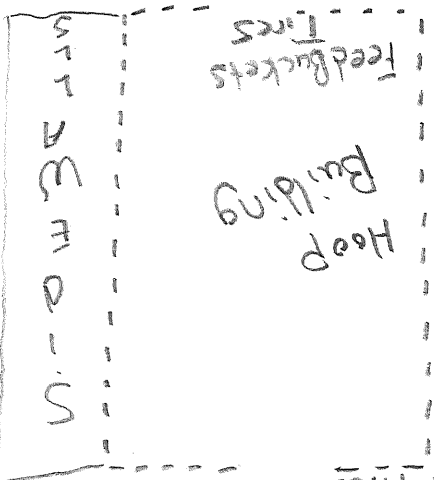 Hoop
Building
FeedBuckets
Tires
SiDEWALLS